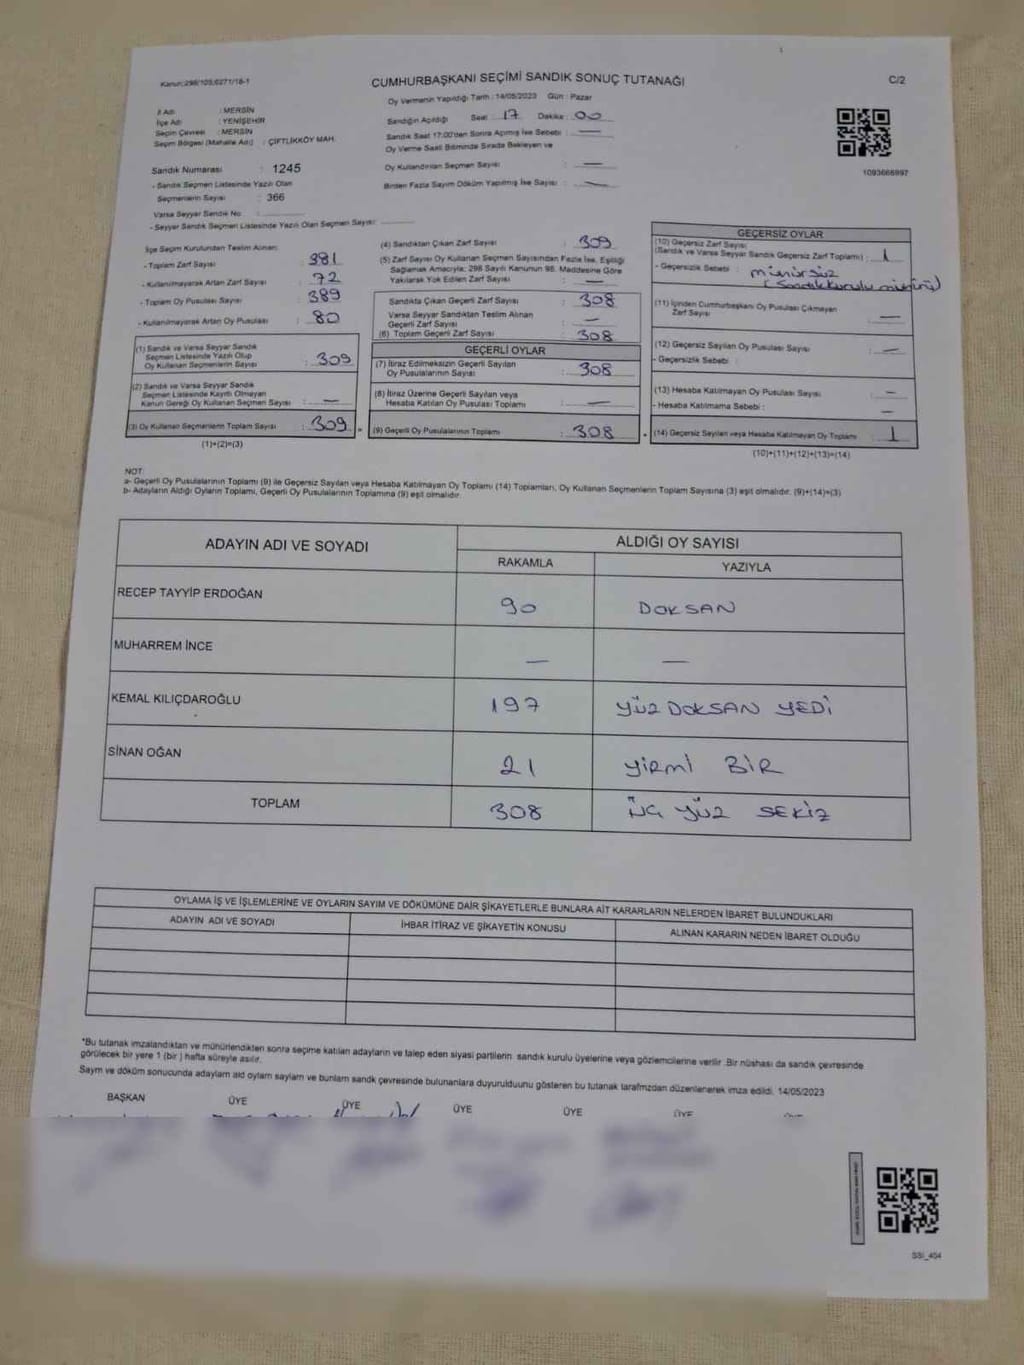 Kanun:298/103,6271/18-1
CUMHURBAŞKANI SEÇİMİ SANDIK SONUÇ TUTANAĞI
C/2
Oy Vermenin Yapıldığı Tarih : 14/05/2023 Gün : Pazar
İl Adı : MERSİN
İlçe Adı : YENİŞEHİR
Seçim Çevresi : MERSİN
Seçim Bölgesi (Mahalle Adı) : ÇİFTLİKKÖY MAH.
Sandığın Açıldığı Saat : 17 Dakika : 00
Sandık Saat 17:00'den Sonra Açılmış İse Sebebi : —
Oy Verme Saati Bitiminde Sırada Bekleyen ve
Oy Kullandırılan Seçmen Sayısı : —
Birden Fazla Sayım Döküm Yapılmış İse Sayısı : —
1093666997
Sandık Numarası : 1245
- Sandık Seçmen Listesinde Yazılı Olan
Seçmenlerin Sayısı : 366
Varsa Seyyar Sandık No :
- Seyyar Sandık Seçmen Listesinde Yazılı Olan Seçmen Sayısı:
İlçe Seçim Kurulundan Teslim Alınan:
- Toplam Zarf Sayısı : 381
- Kullanılmayarak Artan Zarf Sayısı : 72
- Toplam Oy Pusulası Sayısı : 389
- Kullanılmayarak Artan Oy Pusulası : 80
(1) Sandık ve Varsa Seyyar Sandık
Seçmen Listesinde Yazılı Olup
Oy Kullanan Seçmenlerin Sayısı : 309
(2) Sandık ve Varsa Seyyar Sandık
Seçmen Listesinde Kayıtlı Olmayan
Kanun Gereği Oy Kullanan Seçmen Sayısı : —
(3) Oy Kullanan Seçmenlerin Toplam Sayısı : 309
(1)+(2)=(3)
(4) Sandıktan Çıkan Zarf Sayısı : 309
(5) Zarf Sayısı Oy Kullanan Seçmen Sayısından Fazla İse, Eşitliği
Sağlamak Amacıyla; 298 Sayılı Kanunun 98. Maddesine Göre
Yakılarak Yok Edilen Zarf Sayısı : —
Sandıkta Çıkan Geçerli Zarf Sayısı : 308
Varsa Seyyar Sandıktan Teslim Alınan
Geçerli Zarf Sayısı : —
(6) Toplam Geçerli Zarf Sayısı : 308
GEÇERLİ OYLAR
(7) İtiraz Edilmeksizin Geçerli Sayılan
Oy Pusulalarının Sayısı : 308
(8) İtiraz Üzerine Geçerli Sayılan veya
Hesaba Katılan Oy Pusulası Toplamı : —
(9) Geçerli Oy Pusulalarının Toplamı : 308
GEÇERSİZ OYLAR
(10) Geçersiz Zarf Sayısı
(Sandık ve Varsa Seyyar Sandık Geçersiz Zarf Toplamı) : 1
- Geçersizlik Sebebi : mühürsüz
(Sandık kurulu mührü)
(11) İçinden Cumhurbaşkanı Oy Pusulası Çıkmayan
Zarf Sayısı : —
(12) Geçersiz Sayılan Oy Pusulası Sayısı : —
- Geçersizlik Sebebi :
(13) Hesaba Katılmayan Oy Pusulası Sayısı : —
- Hesaba Katılmama Sebebi : —
(14) Geçersiz Sayılan veya Hesaba Katılmayan Oy Toplamı : 1
(10)+(11)+(12)+(13)=(14)
NOT:
a- Geçerli Oy Pusulalarının Toplamı (9) ile Geçersiz Sayılan veya Hesaba Katılmayan Oy Toplamı (14) Toplamları, Oy Kullanan Seçmenlerin Toplam Sayısına (3) eşit olmalıdır. (9)+(14)=(3)
b- Adayların Aldığı Oyların Toplamı, Geçerli Oy Pusulalarının Toplamına (9) eşit olmalıdır.
ADAYIN ADI VE SOYADI
ALDIĞI OY SAYISI
RAKAMLA YAZIYLA
RECEP TAYYİP ERDOĞAN 90 DOKSAN
MUHARREM İNCE — —
KEMAL KILIÇDAROĞLU 197 YÜZ DOKSAN YEDİ
SİNAN OĞAN 21 YİRMİ BİR
TOPLAM 308 ÜÇ YÜZ SEKİZ
OYLAMA İŞ VE İŞLEMLERİNE VE OYLARIN SAYIM VE DÖKÜMÜNE DAİR ŞİKAYETLERLE BUNLARA AİT KARARLARIN NELERDEN İBARET BULUNDUKLARI
ADAYIN ADI VE SOYADI İHBAR İTİRAZ VE ŞİKAYETİN KONUSU ALINAN KARARIN NEDEN İBARET OLDUĞU
*Bu tutanak imzalandıktan ve mühürlendikten sonra seçime katılan adayların ve talep eden siyasi partilerin sandık kurulu üyelerine veya gözlemcilerine verilir. Bir nüshası da sandık çevresinde
görülecek bir yere 1 (bir ) hafta süreyle asılır.
Sayım ve döküm sonucunda adayların ald oyların sayların ve bunların sandk çevresinde bulunanlara duyurulduunu gösteren bu tutanak tarafmzdan düzenlenerek imza edildi. 14/05/2023
BAŞKAN ÜYE ÜYE ÜYE ÜYE ÜYE
SSI_404